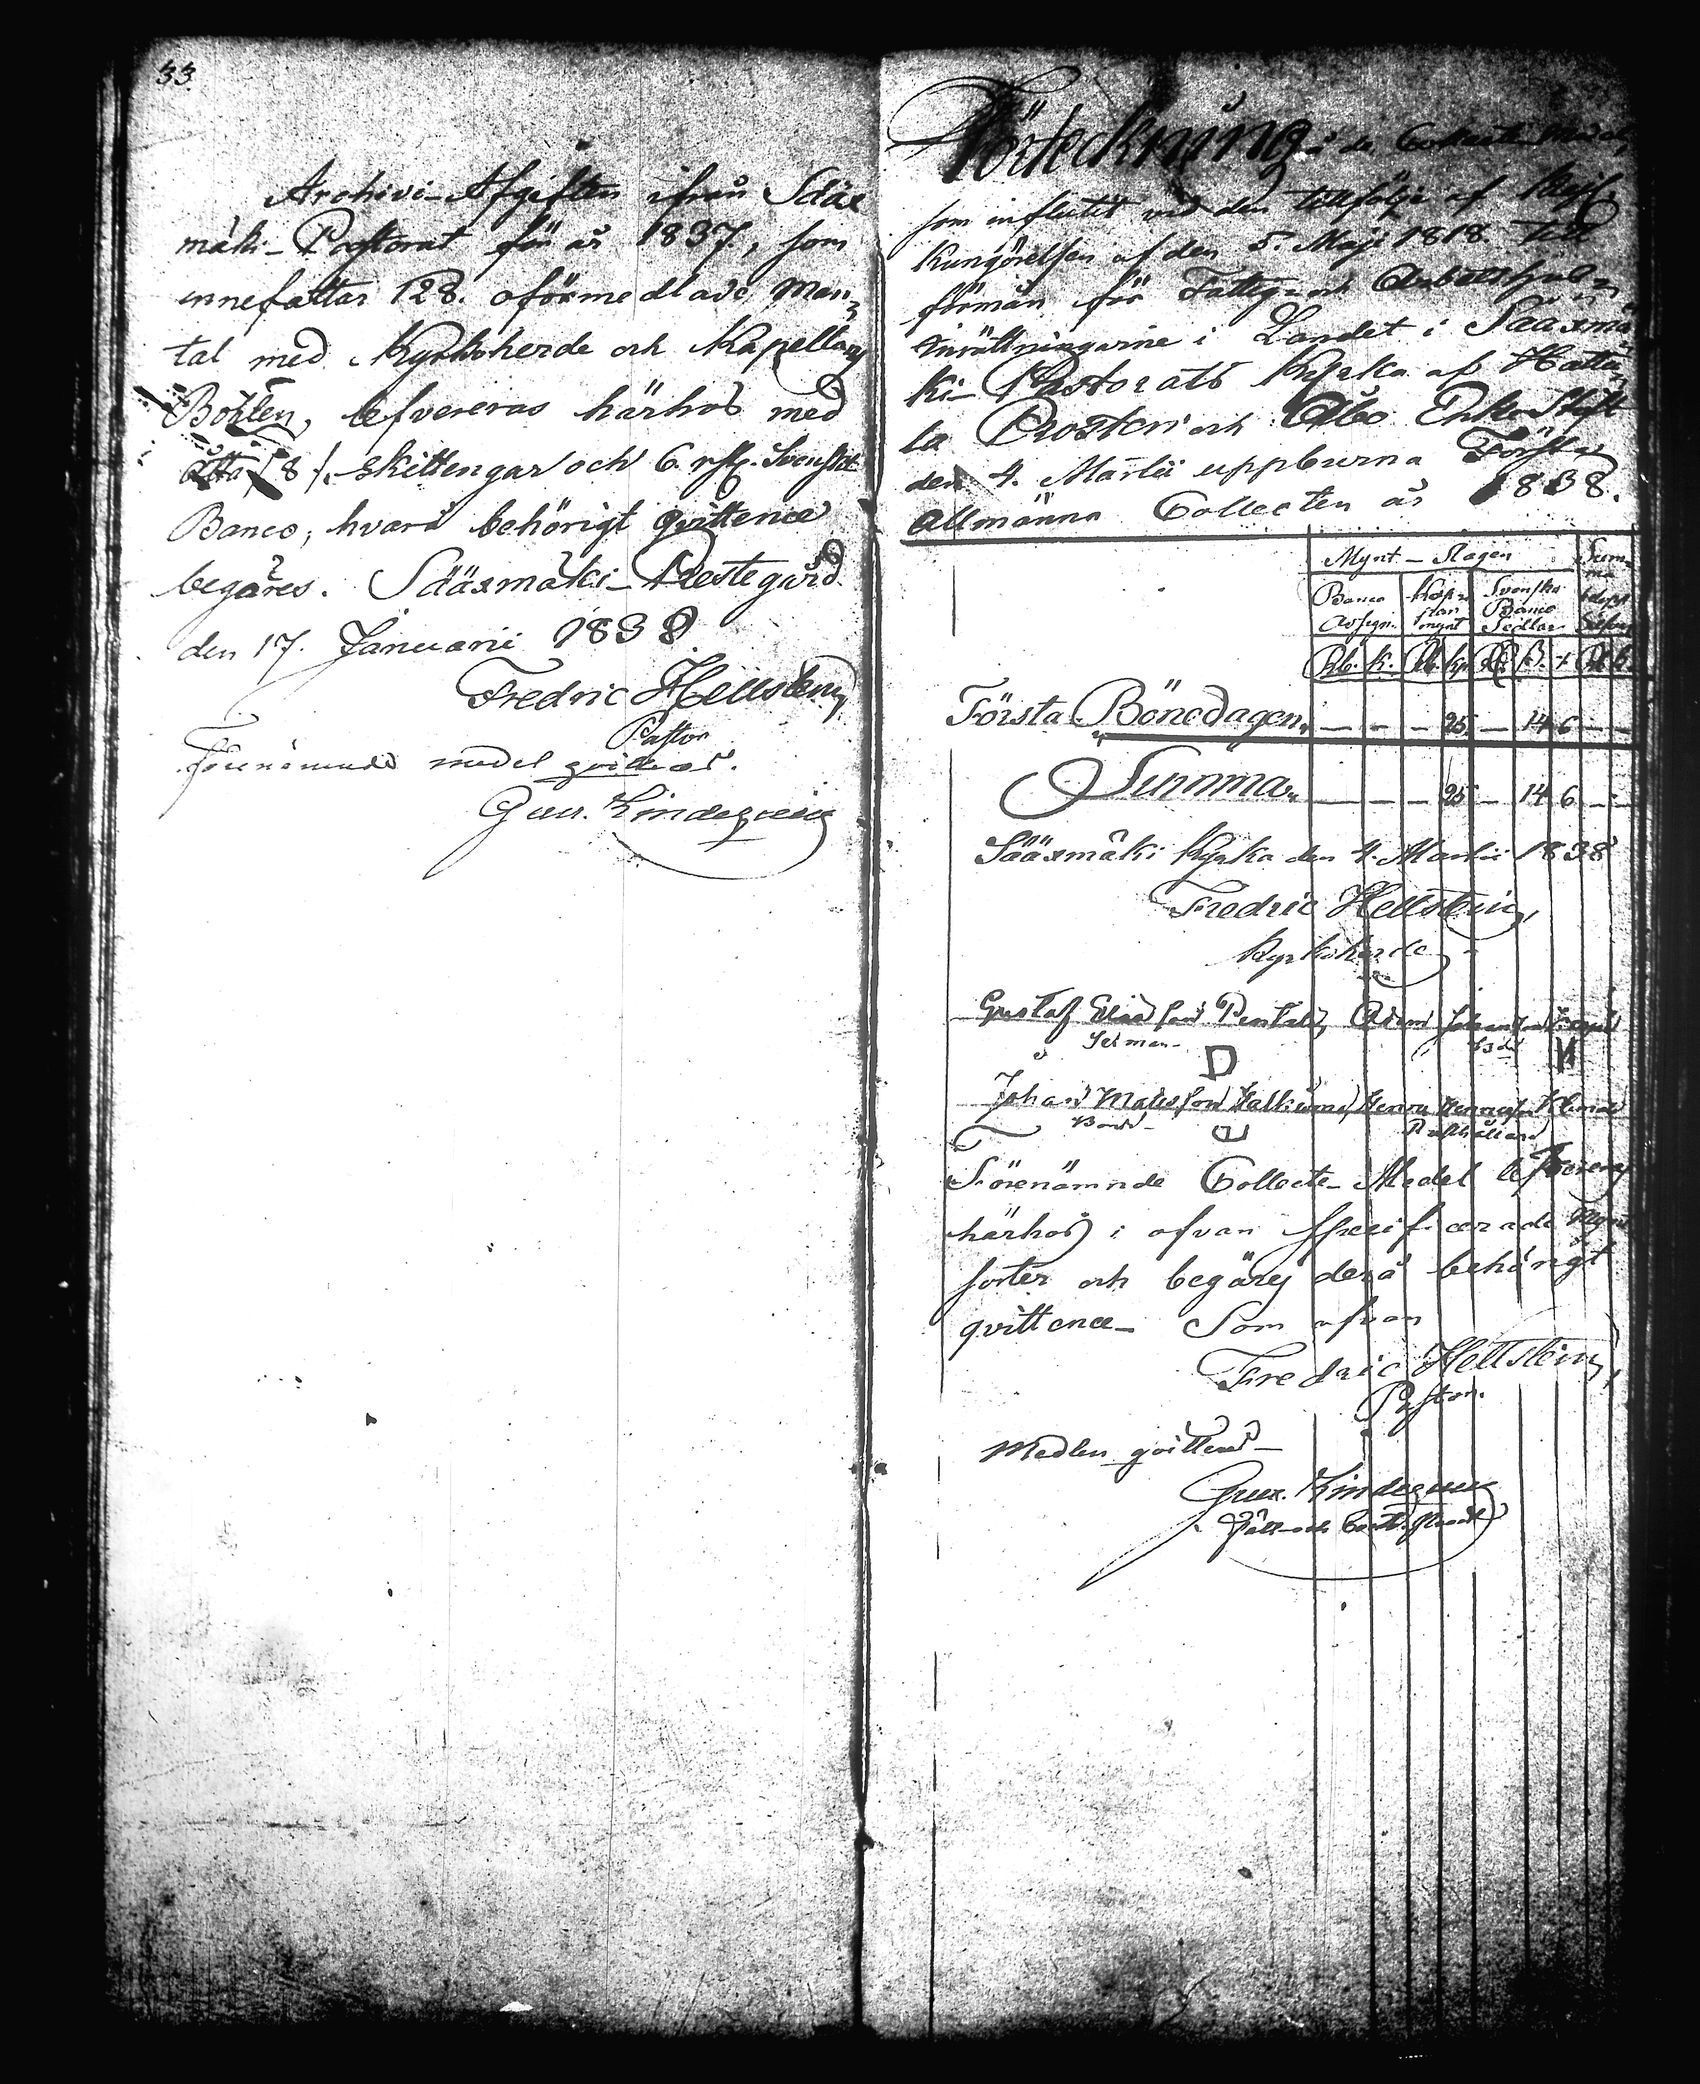 33.
Archivi-Afgiften ifrån Sääx
mäki-Pastorat för år 1837, som
innefattar 128. oförmedlade Man-
tal med Kyrkoherde och Kapellans
Bohlen, lefvereras härhos med
åtta /:8:/ skillingar och 6 rst. Svenskt
Banco; hvarå behörigt qvittence
begäres. Sääxmäki-Prestegård
den 17. Januarii 1838
Fredric Hellsten
Pastor
Förenämnde medel qvitteras.
Gust. Lindeqvist
Förteckning å de Collecte Medel,
som influtit vid den tillfölje af Kejs.
Kungörelsen af den 5. Maji 1818. till
förmån för Fattig- och Arbetshjelps
Inrättningarne i Landet i Sääxmä-
ki-Pastorats Kyrka af Hattu-
la Prosteri och Åbo Erke Stift
den 4. Martii uppburna Första
Allmänna Collecten år 1838.
Mynt-Slagen Sum-
ma
Banco Koppar Svenska
Assign. mynt Banco Sedlar
Rb. k. Rb. kp. Rd. ß. r.
Första Bönedagen — — — 25 — 14 6 — —
Summa — — — 25 — 14 6 — —
Sääxmäki Kyrka den 4. Martii 1838
Fredric Hellsten
Kyrkoherde
Gustaf Johansson
Johan Matsson Henric Henricsson
Bonde Rusthållare
Förenämnde Collecte-Medel lefvereras
härhos i ofvan specificerade Mynt
sorter och begäres derå behörigt
qvittence- Som ofvan
Fredric Hellsten
Pastor.
Medlen qvitteras-
Gust. Lindeqvist